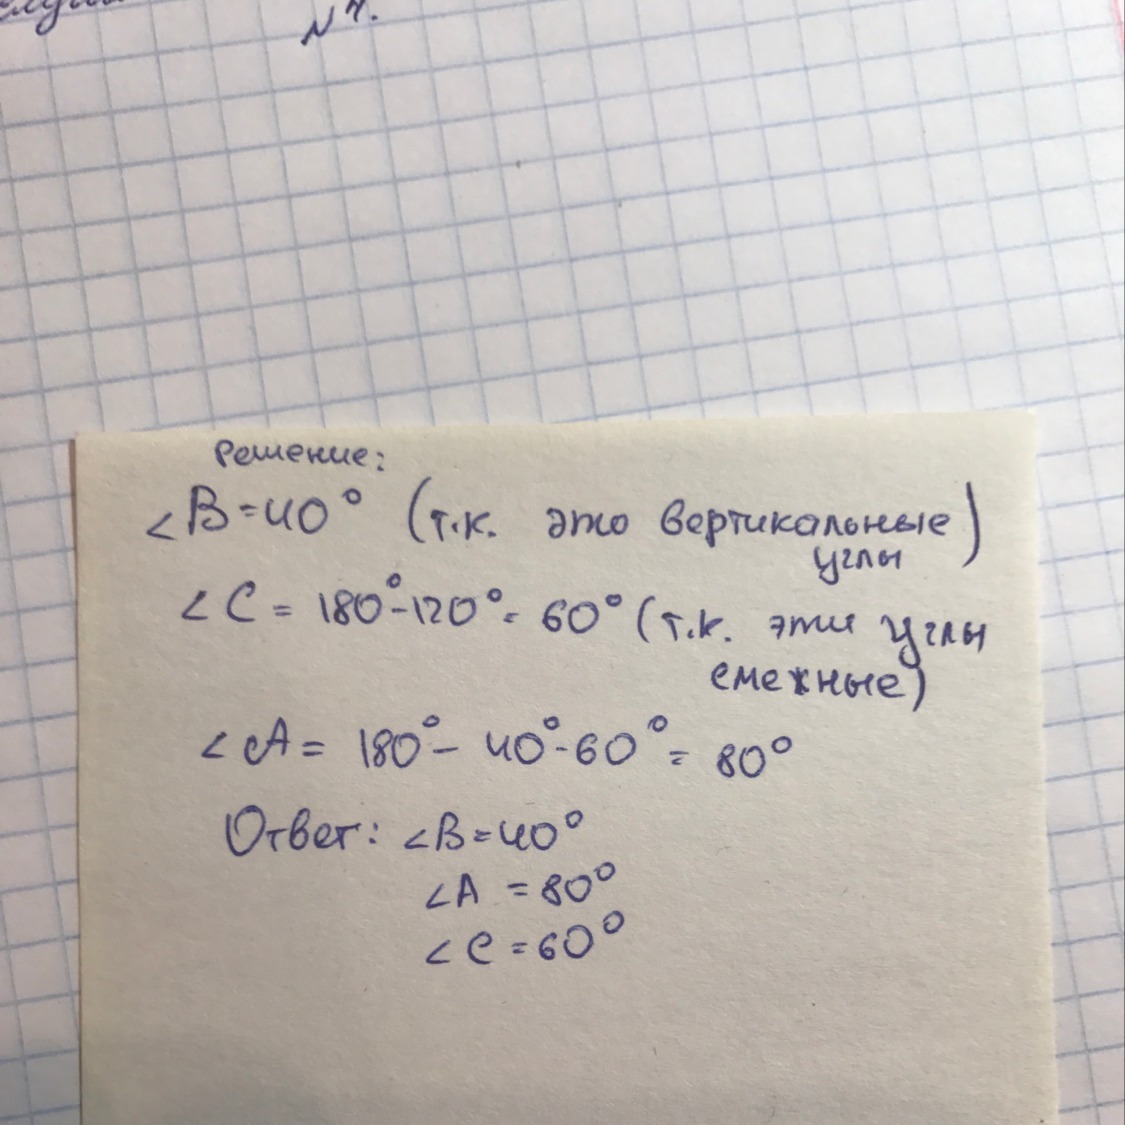 № 4.
Решение:
∠B=40° (т.к. это вертикальные
углы)
∠C = 180°-120°= 60° (т.к. эти углы
смежные)
∠A = 180°- 40°-60°= 80°
Ответ: ∠B=40°
∠A = 80°
∠C = 60°